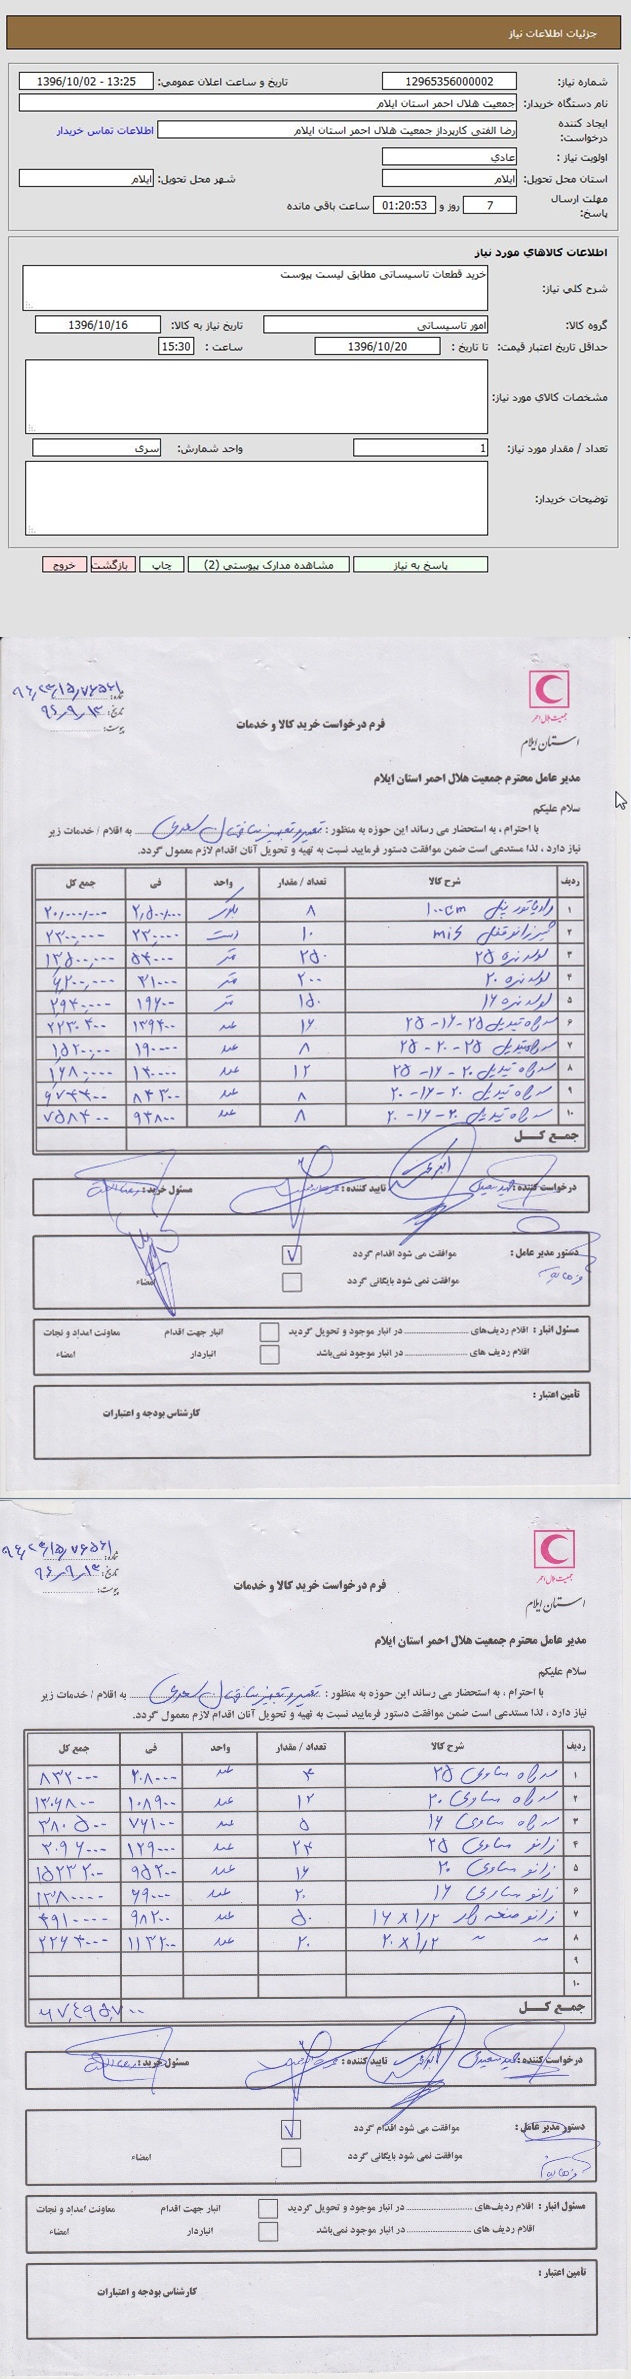 جزئیات اطلاعات نیاز
شماره نیاز: 12965356000002 تاریخ و ساعت اعلان عمومی: 1396/10/02 - 13:25
نام دستگاه خریدار: جمعیت هلال احمر استان ایلام
ایجاد کننده درخواست: رضا الفتی کارپرداز جمعیت هلال احمر استان ایلام اطلاعات تماس خریدار
اولویت نیاز : عادی
استان محل تحویل: ایلام شهر محل تحویل: ایلام
مهلت ارسال پاسخ: 7 روز و 01:20:53 ساعت باقی مانده
اطلاعات کالاهای مورد نیاز
شرح کلی نیاز: خرید قطعات تاسیساتی مطابق لیست پیوست
گروه کالا: امور تاسیساتی تاریخ نیاز به کالا: 1396/10/16
حداقل تاریخ اعتبار قیمت: تا تاریخ : 1396/10/20 ساعت : 15:30
مشخصات کالای مورد نیاز:
تعداد / مقدار مورد نیاز: 1 واحد شمارش: سری
توضیحات خریدار:
پاسخ به نیاز مشاهده مدارک پیوستی (2) چاپ بازگشت خروج
جمعیت هلال احمر
استان ایلام
شماره:
تاریخ: ۹۶٫۹٫۱۳
پیوست:
فرم درخواست خرید کالا و خدمات
مدیر عامل محترم جمعیت هلال احمر استان ایلام
سلام علیکم
با احترام ، به استحضار می رساند این حوزه به منظور : تعمیر و تجهیز ساختمان سعدی به اقلام / خدمات زیر
نیاز دارد ، لذا مستدعی است ضمن موافقت دستور فرمایید نسبت به تهیه و تحویل آنان اقدام لازم معمول گردد.
ردیف شرح کالا تعداد / مقدار واحد فی جمع کل
۱ رادیاتور پنل ۱۰۰cm ۸ بلوک ۲٫۵۰۰٫۰۰۰ ۲۰٫۰۰۰٫۰۰۰
۲ شیر زانو قفل mis ۱۰ دست ۲۳۰۰۰۰ ۲۳۰۰۰۰۰
۳ لوله نره ۲۵ ۲۵۰ متر ۵۴۰۰۰ ۱۳۵۰۰٫۰۰۰
۴ لوله نره ۲۰ ۲۰۰ متر ۳۱۰۰۰ ۶٫۲۰۰٫۰۰۰
۵ لوله نره ۱۶ ۱۵۰ متر ۱۹۶۰۰ ۲۹۴۰۰۰۰
۶ سه راه تبدیل ۲۵-۱۶-۲۵ ۱۶ عدد ۱۳۹۴۰۰ ۲۲۳۰۴۰۰
۷ سه راه تبدیل ۲۵-۲۰-۲۵ ۸ عدد ۱۹۰۰۰۰ ۱٫۵۲۰٫۰۰۰
۸ سه راه تبدیل ۲۰-۱۶-۲۵ ۱۲ عدد ۱۴۰۰۰۰ ۱٫۶۸۰٫۰۰۰
۹ سه راه تبدیل ۲۰-۱۶-۲۰ ۸ عدد ۸۴۳۰۰ ۶۷۴۴۰۰
۱۰ سه راه تبدیل ۲۰-۱۶-۲۰ ۸ عدد ۹۴۸۰۰ ۷۵۸۴۰۰
جمع کل
درخواست کننده: تایید کننده : مسئول خرید :
دستور مدیر عامل : موافقت می شود اقدام گردد
موافقت نمی شود بایگانی گردد امضاء
مسئول انبار : اقلام ردیف‌های در انبار موجود و تحویل گردید انبار جهت اقدام معاونت امداد و نجات
اقلام ردیف های در انبار موجود نمی‌باشد انباردار امضاء
تأمین اعتبار :
کارشناس بودجه و اعتبارات
جمعیت هلال احمر
استان ایلام
شماره:
تاریخ: ۹۶٫۹٫۱۳
پیوست:
فرم درخواست خرید کالا و خدمات
مدیر عامل محترم جمعیت هلال احمر استان ایلام
سلام علیکم
با احترام ، به استحضار می رساند این حوزه به منظور : تعمیر و تجهیز ساختمان سعدی به اقلام / خدمات زیر
نیاز دارد ، لذا مستدعی است ضمن موافقت دستور فرمایید نسبت به تهیه و تحویل آنان اقدام لازم معمول گردد.
ردیف شرح کالا تعداد / مقدار واحد فی جمع کل
۱ سه راه مساوی ۲۵ ۴ عدد ۲۰۸۰۰۰ ۸۳۲۰۰۰
۲ سه راه مساوی ۲۰ ۱۲ عدد ۱۰۸۹۰۰ ۱۳۰۶۸۰۰
۳ سه راه مساوی ۱۶ ۵ عدد ۷۶۱۰۰ ۳۸۰۵۰۰
۴ زانو مساوی ۲۵ ۲۴ عدد ۱۲۹۰۰۰ ۳۰۹۶۰۰۰
۵ زانو مساوی ۲۰ ۱۶ عدد ۹۵۲۰۰ ۱۵۲۳۲۰۰
۶ زانو مساوی ۱۶ ۲۰ عدد ۶۹۰۰۰ ۱۳۸۰۰۰۰
۷ زانو صفحه دار ۱۶ x ۱/۲ ۵۰ عدد ۹۸۲۰۰ ۴۹۱۰۰۰۰
۸ " " ۲۰ x ۱/۲ ۲۰ عدد ۱۱۳۲۰۰ ۲۲۶۴۰۰۰
۹
۱۰
جمع کل
درخواست کننده: تایید کننده : مسئول خرید :
دستور مدیر عامل : موافقت می شود اقدام گردد
موافقت نمی شود بایگانی گردد امضاء
مسئول انبار : اقلام ردیف‌های در انبار موجود و تحویل گردید انبار جهت اقدام معاونت امداد و نجات
اقلام ردیف های در انبار موجود نمی‌باشد انباردار امضاء
تأمین اعتبار :
کارشناس بودجه و اعتبارات